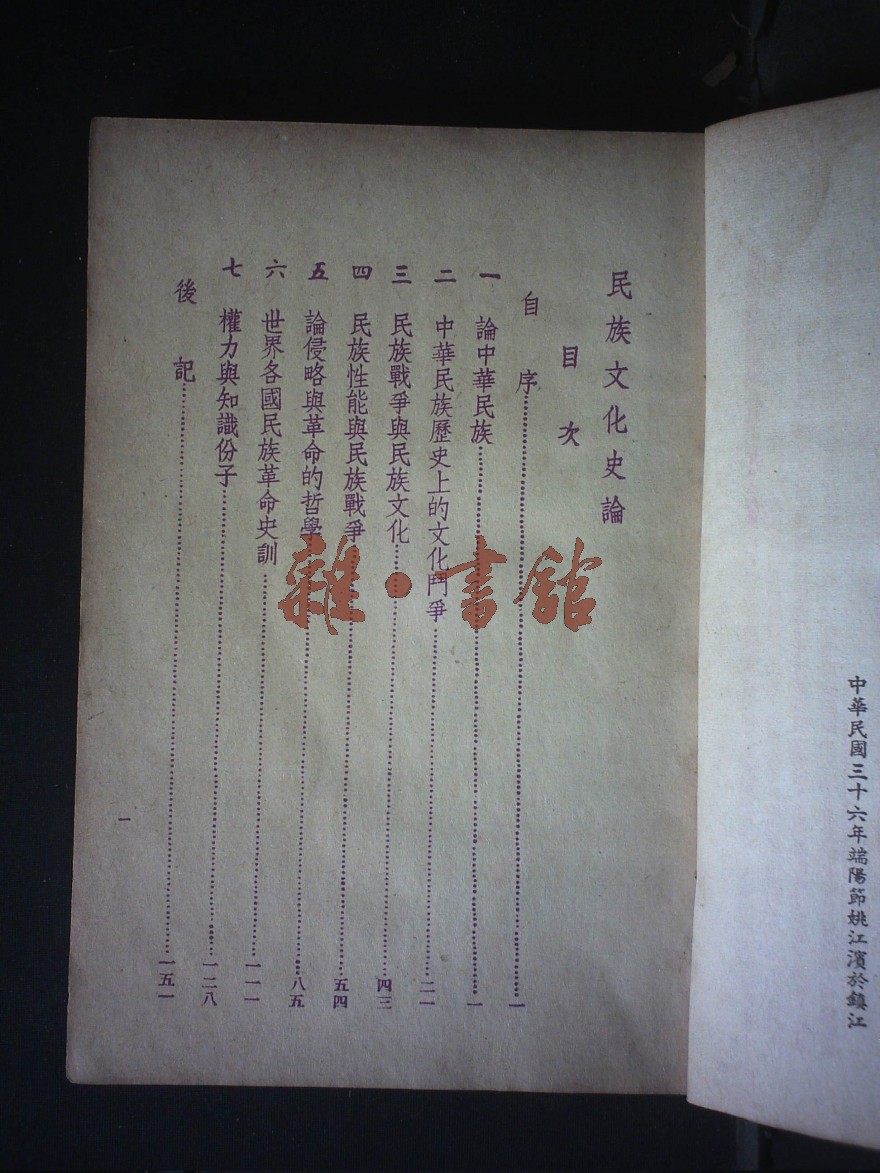 中華民國三十六年端陽節姚江濱於鎮江
民族文化史論
目次
自序……一
一 論中華民族……一
二 中華民族歷史上的文化鬥爭……二一
三 民族戰爭與民族文化……四三
四 民族性能與民族戰爭……五四
五 論侵略與革命的哲學……八五
六 世界各國民族革命史訓……一一一
七 權力與知識份子……一二八
後記……一五一
一
雜·書館